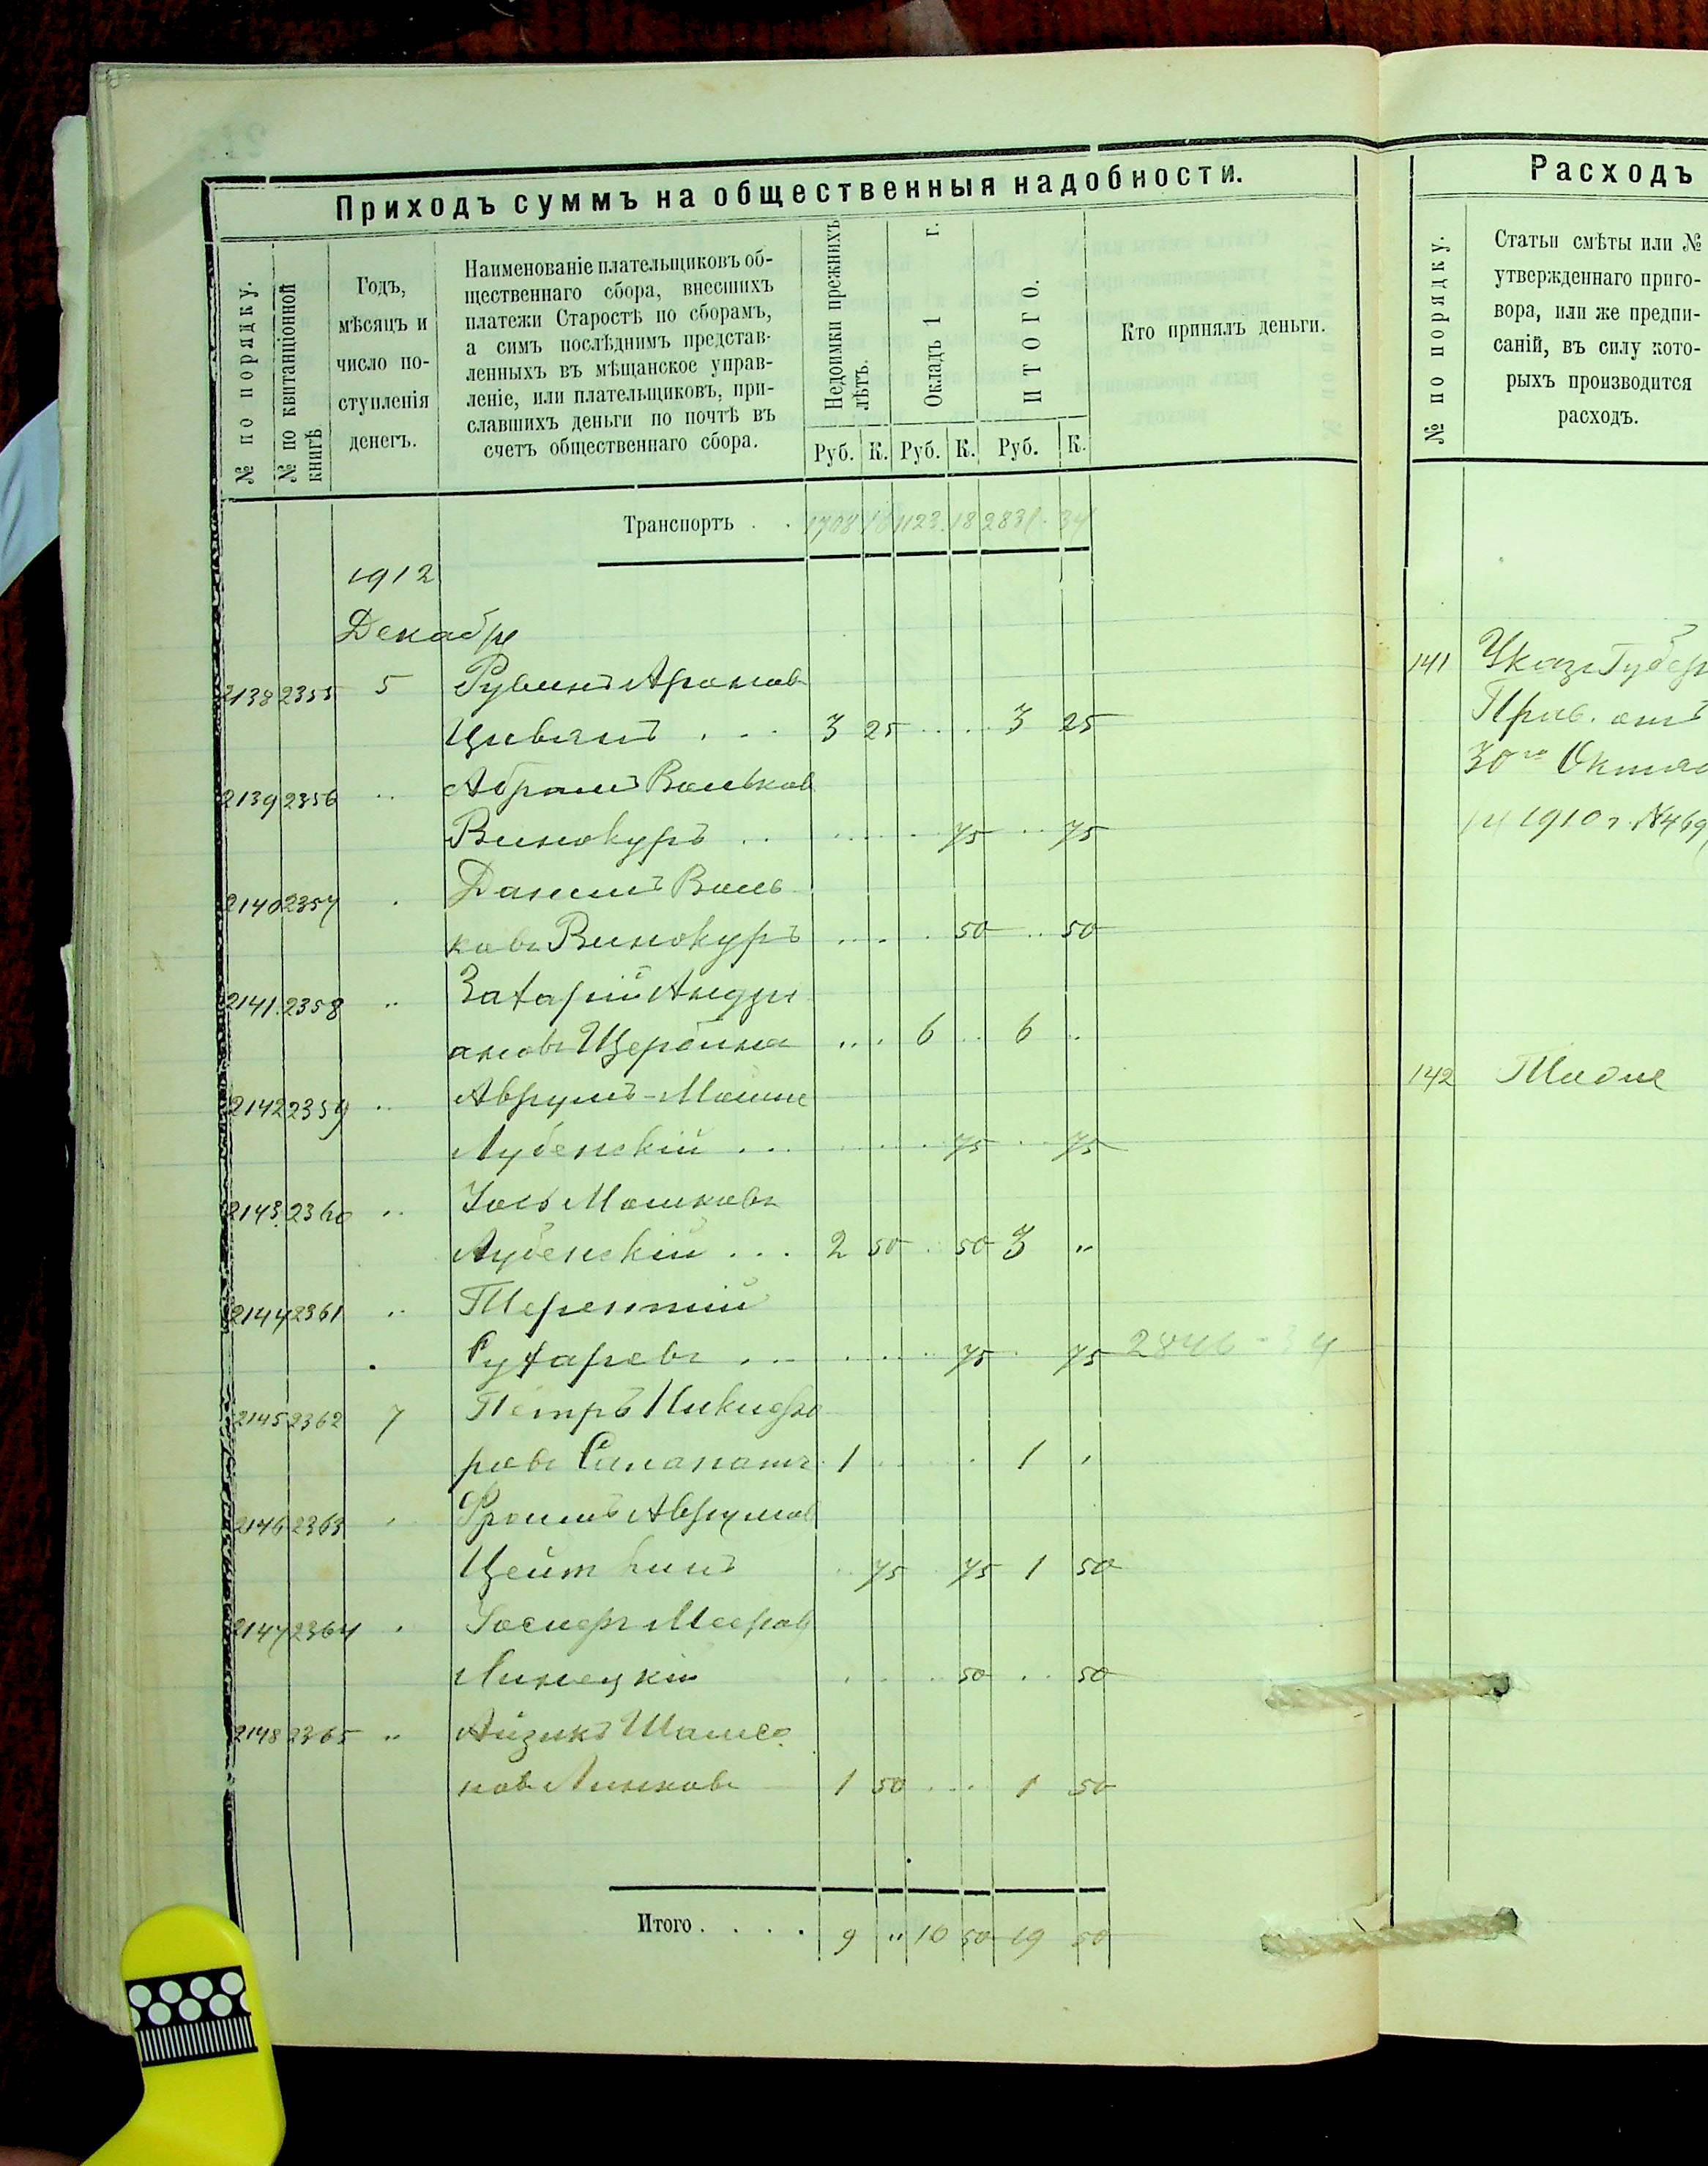 Приходъ суммъ на общественныя надобности.
№ по порядку.
№ по квитанціонной книгѣ
Годъ,
мѣсяцъ и
число по-
ступленія
денегъ.
Наименованіе плательщиковъ об-
щественнаго сбора, внесшихъ
платежи Старостѣ по сборамъ,
а симъ послѣднимъ представ-
ленныхъ въ мѣщанское управ-
леніе, или плательщиковъ, при-
славшихъ деньги по почтѣ въ
счетъ общественнаго сбора.
Недоимки прежнихъ лѣтъ.
Окладъ 1 г.
ИТОГО.
Руб. К. Руб. К. Руб. К.
Кто принялъ деньги.
Транспортъ . . 1708 1123. 18 2831. 34
1912
Декабря
2138 2355 5 Рувинъ Аронов
Циванъ . . . 3 25 . . . . 3 25
2139 2356 .. Абрамъ Вольков
Винокуръ . . 75 75
2140 2357 . Данилъ Воль
ковъ Винокуръ 50 50
2141. 2358 .. Захарій Андрі
ановъ Щербина 6 6
2142 2359 .. Аврумъ-Мошне
Лубенскій . . . 75 75
2143. 2360 .. Іось Мошковъ
Лубенскій . . . 2 50 50 3 „
2144 2361 .. Терентій
Сухаревъ . . . 75 75
2145 2362 7 Петръ Никифо
ровъ 1 1
2146 2363 Фроимъ Аврумов
Цейткинъ 75 75 1 50
2147 2364 . Іосифъ Мееров
Линецкій 50 50
2148 2365 „ Айзикъ Шамсо
нов Линковъ 1 50 1 50
Итого . . . . 9 „ 10 50 19 50
Расходъ
№ по порядку.
Статьи смѣты или №
утвержденнаго приго-
вора, или же предпи-
саній, въ силу кото-
рыхъ производится
расходъ.
141 Указъ Губер
Прав. отъ
30го Октяб
1910 г. №469
142 Тоже